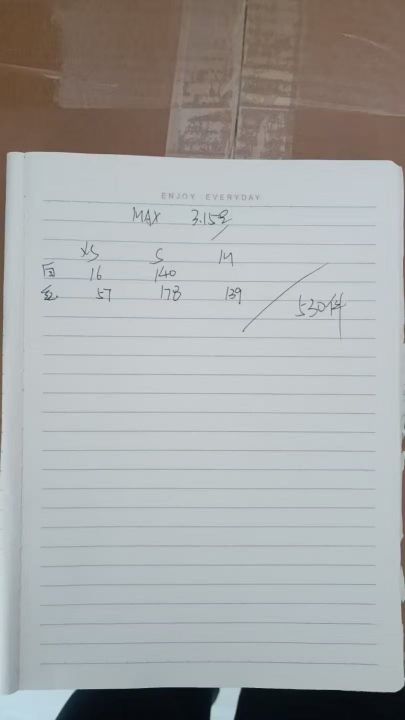 ENJOY EVERYDAY
MAX 3.15号
XS S M
白 16 140
红 57 178 139
530件